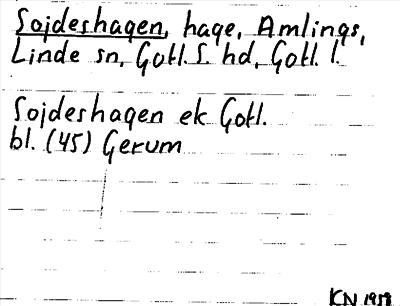 Sojdeshagen, hage, Amlings,
Linde sn, Gotl. S. hd, Gotl. l.
Sojdeshagen ek Gotl.
bl. (45) Gerum
KN 1958